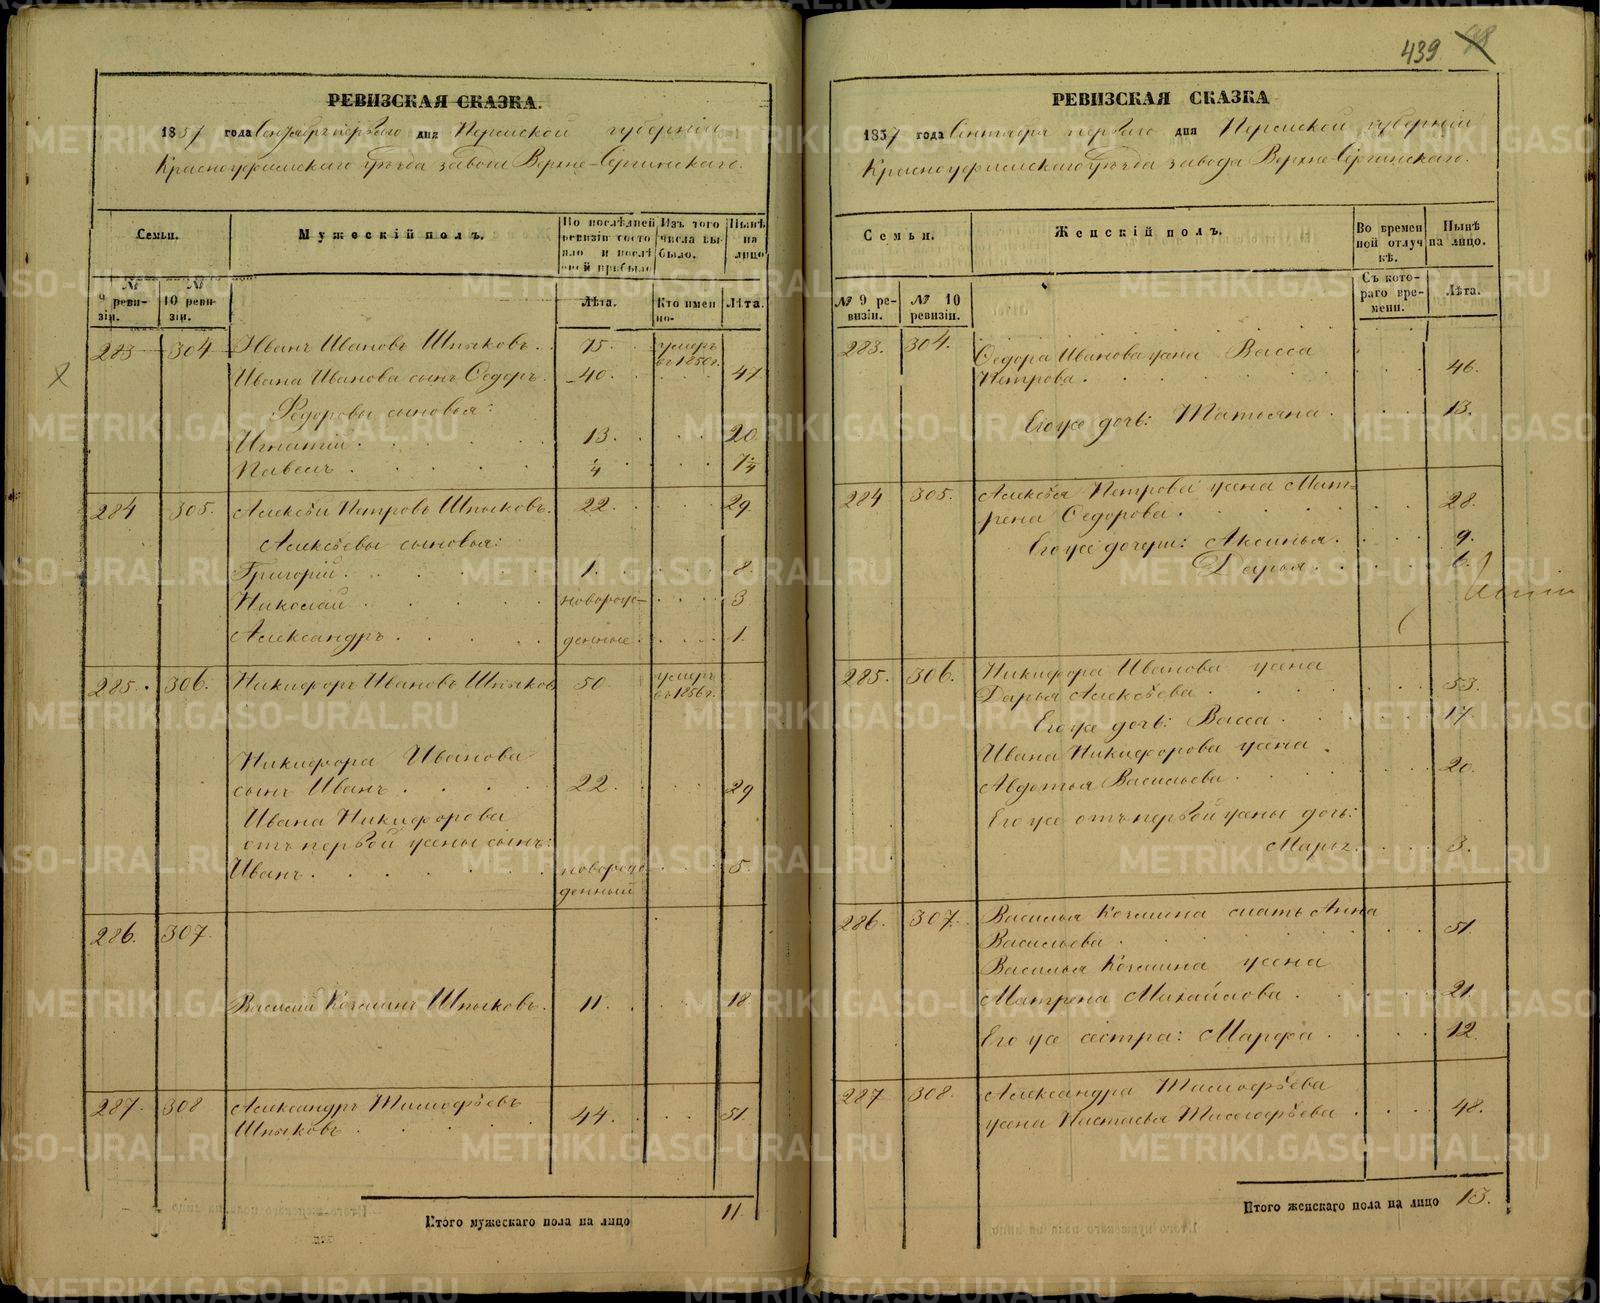 РЕВИЗСКАЯ СКАЗКА.
1857 года Сентября первого дня Пермской губернiи
Красноуфимскаго уѣзда завода Верхне-Сергинскаго.
Семьи.
Мужескiй полъ.
По послѣдней ревизiи состояло и послѣ оной прибыло
Изъ того числа выбыло.
Нынѣ на лицо
№ 9 ревизiи.
№ 10 ревизiи.
Лѣта.
Кто именно.
Лѣта.
283 304 Иванъ Ивановъ Шпыковъ. 75. умеръ въ 1850 г.
Ивана Иванова сынъ Ѳедоръ. 40. 47
Ѳедоровы сыновья:
Игнатiй. 13. 20.
Павелъ. 1/4 7 1/4
284 305. Алексѣй Петровъ Шпыковъ. 22. 29.
Алексѣевы сыновья:
Григорiй. 1. 8
Николай новорож- 3
Александръ. денные. 1.
285. 306. Никифоръ Ивановъ Шпыковъ 50. умеръ въ 1856 г.
Никифора Иванова
сынъ Иванъ. 22. 29
Ивана Никифорова
отъ первой жены сынъ:
Иванъ. новорож- 5.
денный
286. 307.
Василiй Козминъ Шпыковъ. 11. 18.
287. 308 Александръ Тимофѣевъ
Шпыковъ. 44. 51
Итого мужескаго пола на лицо 11.
439 98
РЕВИЗСКАЯ СКАЗКА
1857 года Сентября первого дня Пермской губернiи
Красноуфимскаго уѣзда завода Верхне-Сергинскаго.
Семьи.
Женскiй полъ.
Во временной отлучкѣ.
Нынѣ на лицо.
№ 9 ревизiи.
№ 10 ревизiи.
Съ котораго времени.
Лѣта.
283. 304. Ѳедора Иванова жена Васса
Петрова. 46.
Его же дочь: Татьяна. 13.
284 305. Алексѣя Петрова жена Мат-
рена Ѳедорова. 28.
Его же дочери: Аксинья. 9.
Дарья. 6.
285. 306. Никифора Иванова жена
Дарья Алексѣева. 53.
Его же дочь: Васса. 17
Ивана Никифорова жена
Авдотья Васильева. 20.
Его же отъ первой жены дочь:
Марья. 3.
286. 307. Василья Козмина мать Анна
Васильева. 51.
Василья Козмина жена
Матрена Михайлова. 21.
Его же сестра: Марфа. 12.
287 308. Александра Тимофѣева
жена Настасья Тимофѣева. 48.
Итого женскаго пола на лицо 13.
METRIKI.GASO-URAL.RU